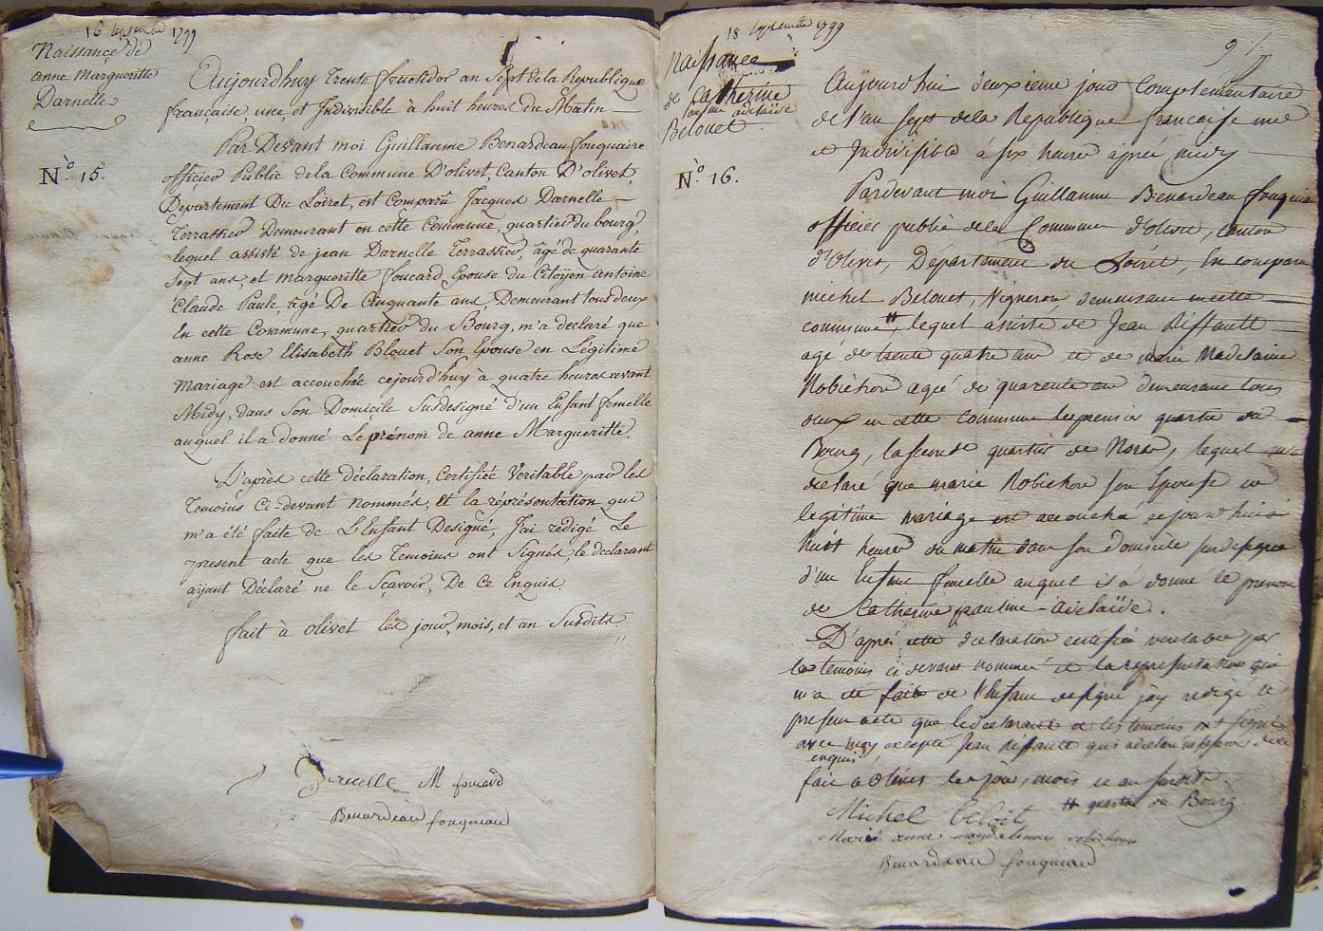 16 septembre 1799
Naissance de
anne Margueritte
Darnelle
N.º 15.
Aujourd'huy trente fructidor an Sept de la Republique
française, une, et Indivisible à huit heures du Matin
Par Devant moi Guillaume Benardeau fouquiau
officier Public de la Commune D'olivet, Canton D'olivet,
Département Du Loiret, est Comparû Jacques Darnelle
Terrassier Demeurant en cette Commune, quartier du bourg,
lequel assisté de jean Darnelle Terrassier, âgé de quarante
Sept ans, et margueritte foucard Epouse du Citoÿen antoine
Claude Paule, âgé De Cinquante ans, Demeurant tous deux
En cette Commune, quartier du Bourg, m'a declaré que
anne Rose Elisabeth Blouet Son Epouse en Légitime
mariage est accouchée cejourd'huy à quatre heures avant
Midy, dans Son Domicile Susdesigné d'un Enfant femelle
auquel il a donné Le prénom de anne Margueritte.
D'après cette Déclaration, Certifiée Veritable par les
Temoins Ci-devant nommés, Et la réprésentation qui
m'a été faite de L'Enfant Designé, J'ai rédigé Le
present acte que les Temoins ont Signés, le declarant
ayant Déclaré ne le Sçavoir, De Ce Enquis.
fait à olivet les jour, mois, et an Susdits.
Darnelle M foucard
Benardeau fouquiau
18 septembre 1799
Naissance
de Catherine
pauline adelaïde
Belouet
N.º 16.
Aujourd'hui deuxieme jour Complementaire
de l'an Sept de la Republique francaise une
et Indivisible à six heures après midy
Pardevant moi Guillaume Benardeau fouquiau
officier public de la Commune d'olivet, canton
d'olivet, Département du Loiret, En compara
michel Belouet, Vigneron demeurant en cette
commune # lequel assisté de Jean Riffault
agé de trente quatre ans et de marie Madelaine
Robichon agée de quarente ans demeurant tous
deux en cette commune le premier quartier du
Bourg, la seconde quartier de Noras, lequel m'a
declaré que marie Robichon son Epouse en
legitime mariage est accouchée cejourd'hui à
huit heures du matin dans son Domicile susdesigné
d'un Enfant femelle auquel il a donné le prenom
de Catherine pauline adelaïde.
D'après cette declaration certifiée veritable par
les temoins ci devant nommés et la representation qui
m'a été faite de l'Enfant designé j'ay redigé le
present acte que le declarant et les temoins ont signé
avec moy excepté Jean Riffault qui a declaré ne savoir de ce
enquis
fait à olivet les jour, mois et an susdits.
# quartier du Bourg
Michel belouet
Marie anne magdelainne robichon
Benardeau fouquiau